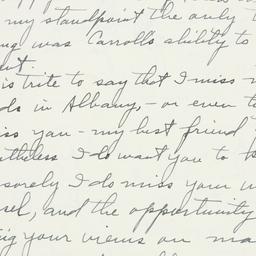 my standpoint the only
was Carroll's ability to
is trite to say that I miss
in Albany, - or even
you - my best friend
I do want you to
sorely I do miss your
and the opportunity
your views on